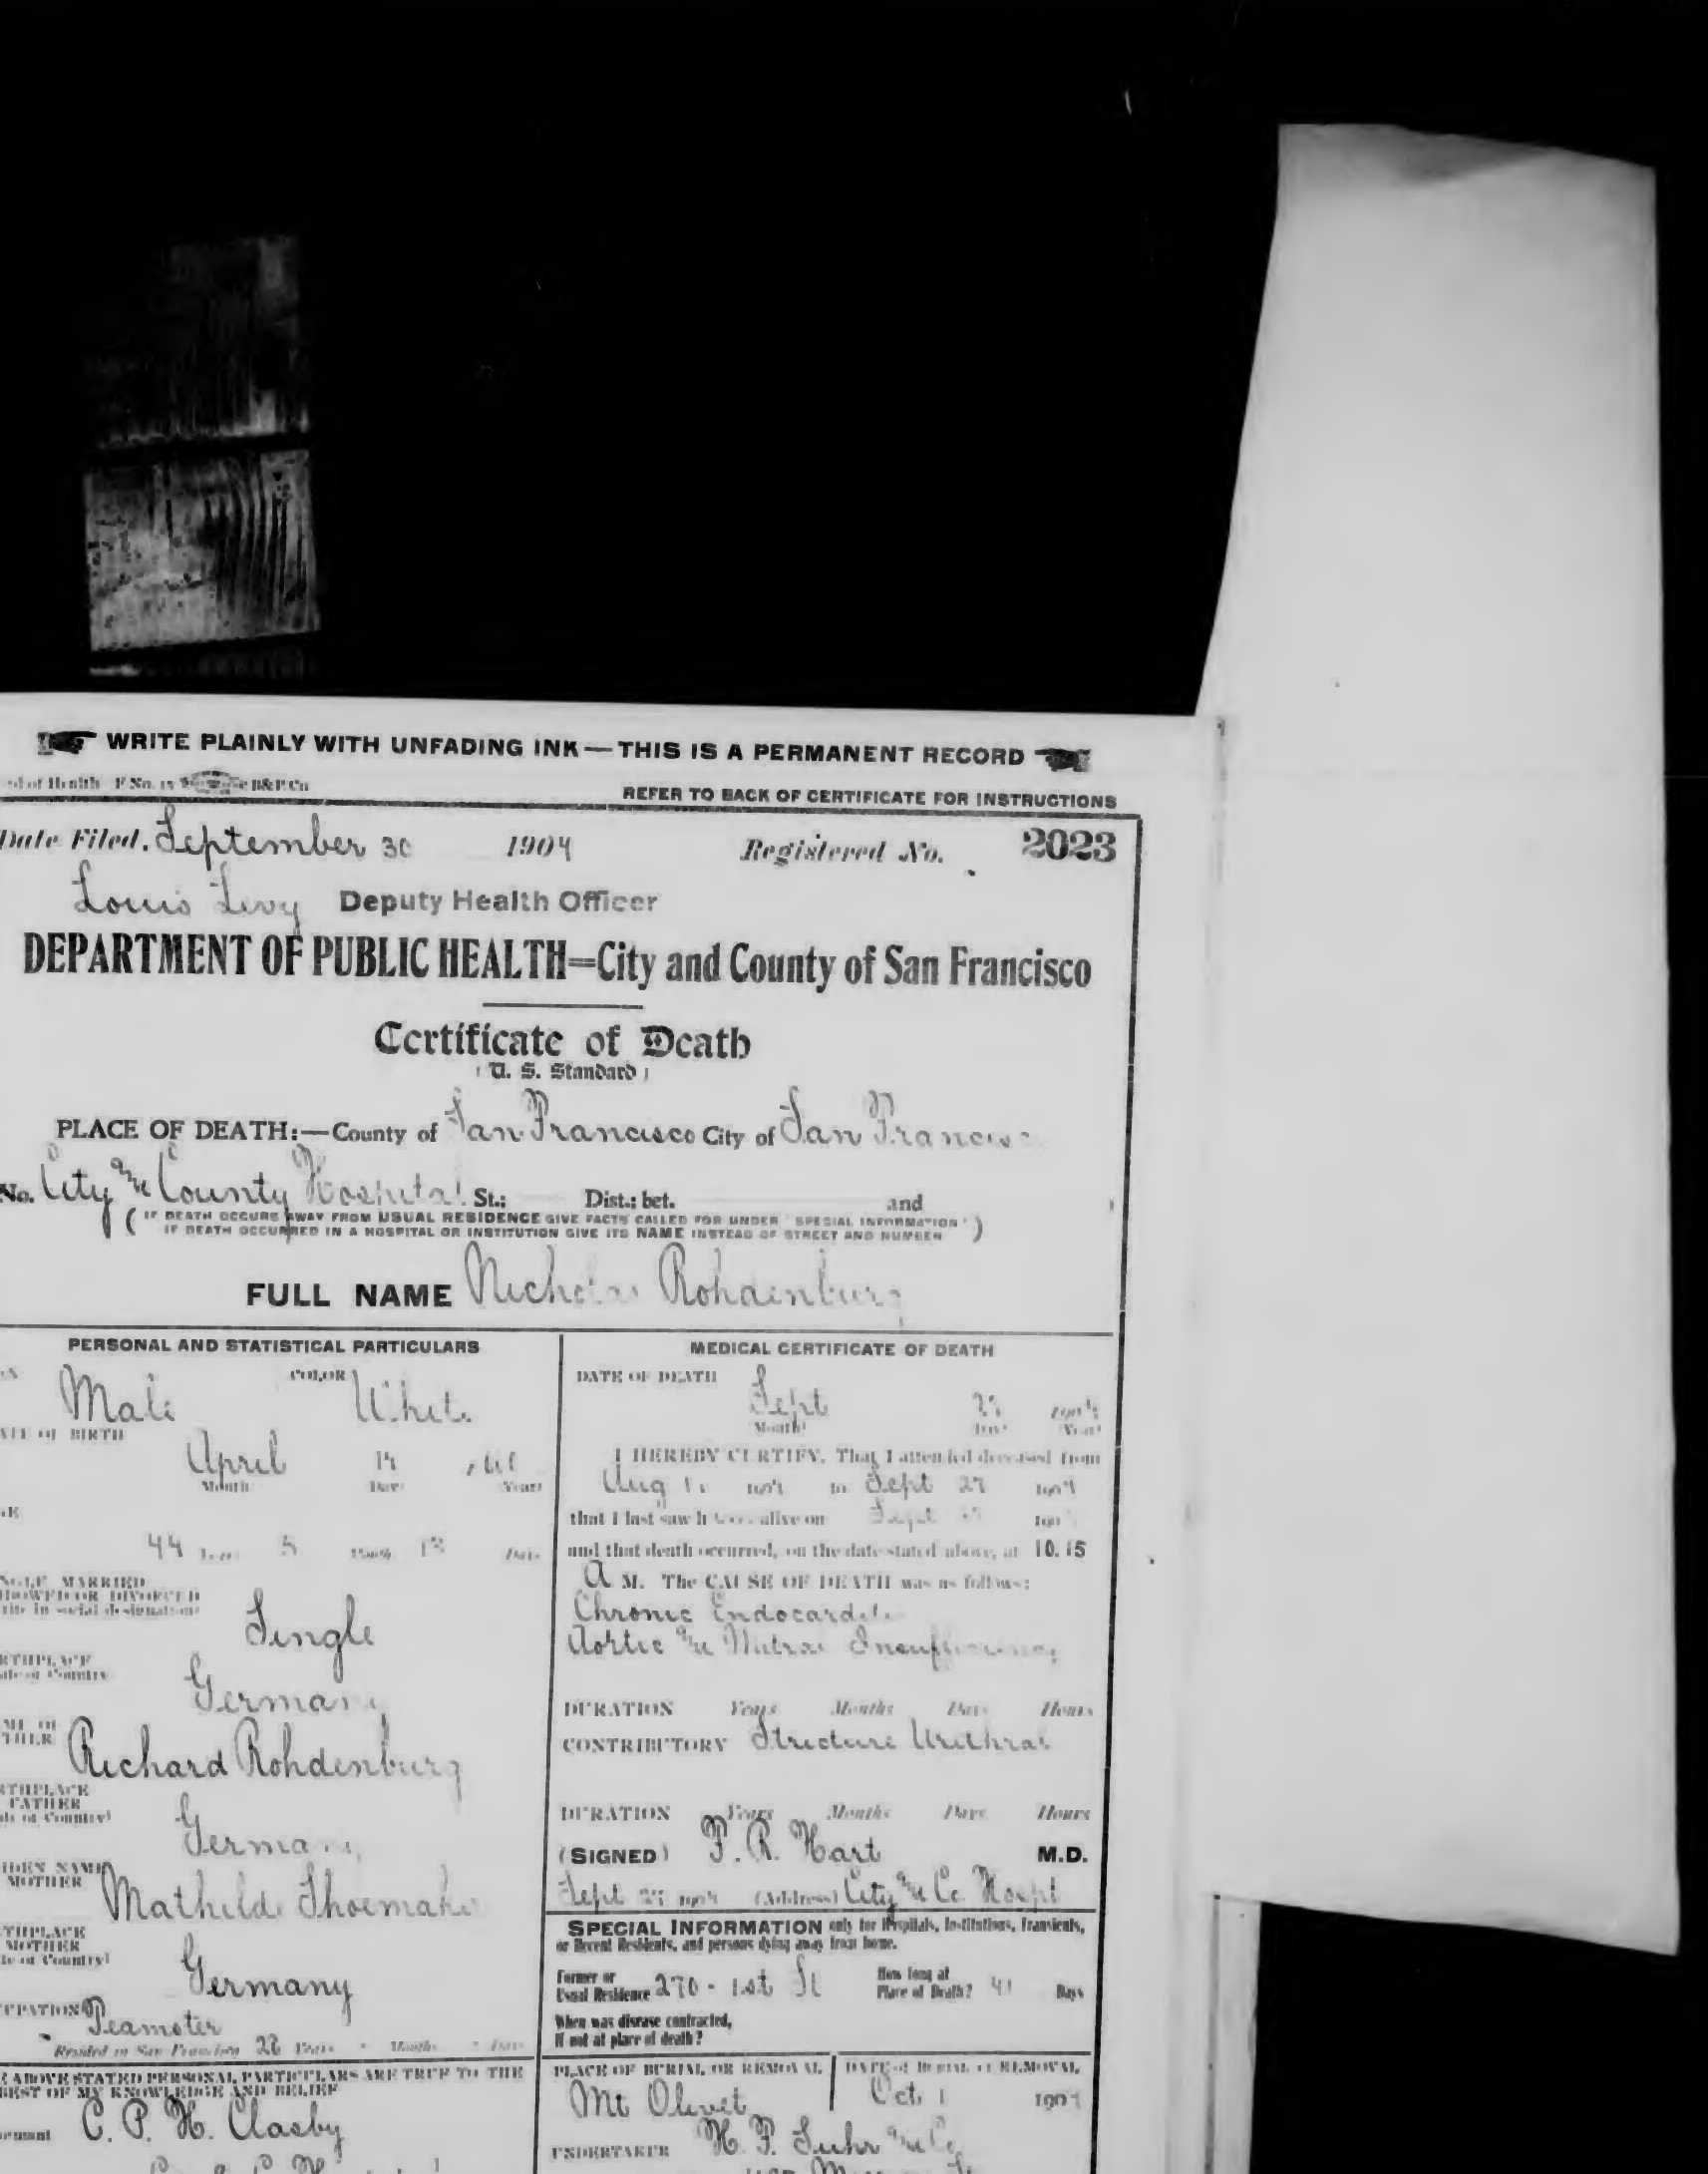 WRITE PLAINLY WITH UNFADING INK—THIS IS A PERMANENT RECORD
of Health F No. 15 B&P Co
REFER TO BACK OF CERTIFICATE FOR INSTRUCTIONS
Date Filed, September 30 1904 Registered No. 2023
Louis Levy Deputy Health Officer
DEPARTMENT OF PUBLIC HEALTH=City and County of San Francisco
Certificate of Death
(U. S. Standard)
PLACE OF DEATH:—County of San Francisco City of San Francisc
No. City and County Hospital St.; Dist.; bet. and
(IF DEATH OCCURS AWAY FROM USUAL RESIDENCE GIVE FACTS CALLED FOR UNDER "SPECIAL INFORMATION"
IF DEATH OCCURRED IN A HOSPITAL OR INSTITUTION GIVE ITS NAME INSTEAD OF STREET AND NUMBER)
FULL NAME Nicholas Rohdenburg
PERSONAL AND STATISTICAL PARTICULARS
COLOR
Male White
DATE OF BIRTH
April 14
Month Day Year
44 Years 5 Months 13 Days
SINGLE MARRIED
WIDOWED OR DIVORCED
Write in social designation
Single
BIRTHPLACE
State or Country
Germany
NAME OF
FATHER
Richard Rohdenburg
BIRTHPLACE
FATHER
State or Country)
Germany
MAIDEN NAME
MOTHER
Mathilde Shoemaker
BIRTHPLACE
MOTHER
State or Country)
Germany
OCCUPATION
Teamster
Resided in San Francisco Years Months Days
ABOVE STATED PERSONAL PARTICULARS ARE TRUE TO THE
BEST OF MY KNOWLEDGE AND BELIEF
C. P. H. Clasby
MEDICAL CERTIFICATE OF DEATH
DATE OF DEATH
Sept 27 1904
Month Day Year
I HEREBY CERTIFY, That I attended deceased from
Aug 1904 to Sept 27 1904
that I last saw h alive on Sept 190
and that death occurred, on the date stated above, at 10.15
A M. The CAUSE OF DEATH was as follows:
Chronic Endocarditis
Aortic and Mitral Insufficiency
DURATION Years Months Days Hours
CONTRIBUTORY Stricture Urethral
DURATION Years Months Days Hours
(SIGNED) F. R. Hart M.D.
Sept 27 1904 (Address) City and Co. Hospt
SPECIAL INFORMATION only for Hospitals, Institutions, Transients,
or Recent Residents, and persons dying away from home.
Former or
Usual Residence 270 - 1st St
How long at
Place of Death? 41 Days
When was disease contracted,
If not at place of death?
PLACE OF BURIAL OR REMOVAL
Mt Olivet
DATE of BURIAL or REMOVAL
Oct. 1 1904
UNDERTAKER H. F. Suhr and Co